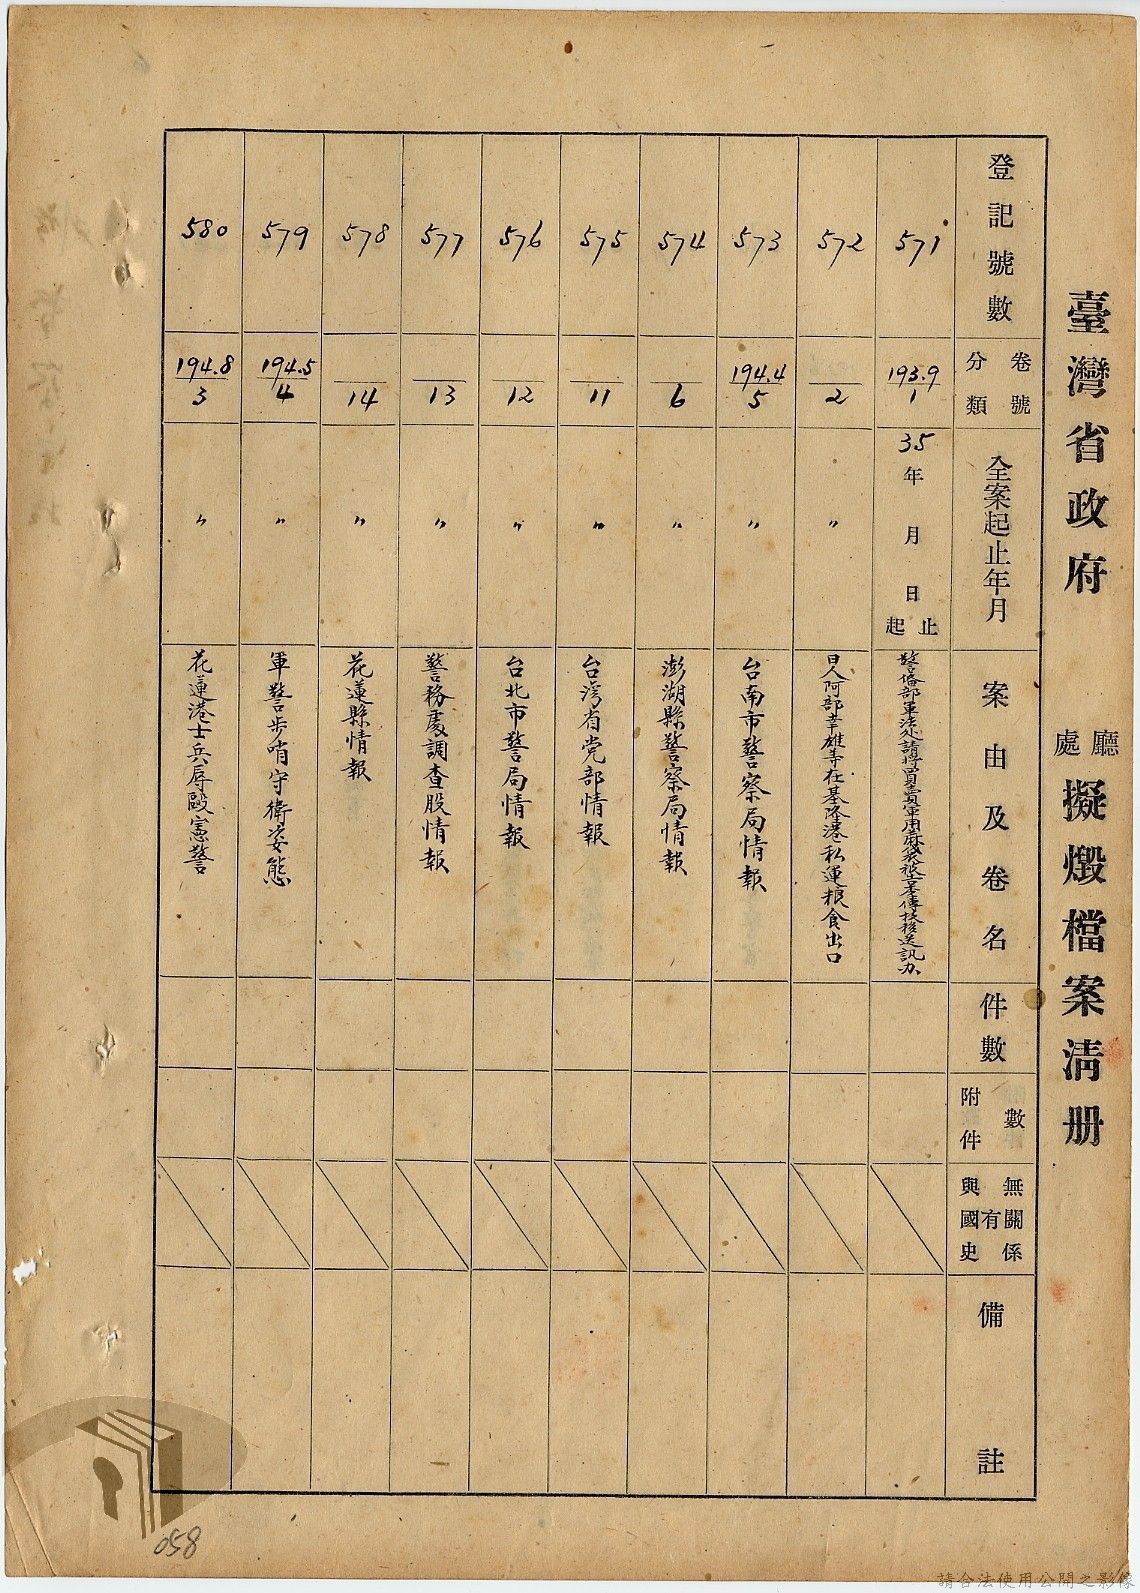 臺灣省政府 廳處 擬燬檔案清册
登記號數
分類 卷號
全案起止年月
案由及卷名
件數
附件 數
與國史 有無關係
備註
571
193.9
1
35年 月 日 起止
警備部軍法處請將買賣軍用麻袋
572
2
〃
日人阿部幸雄等在基隆港私運粮食出口
573
194.4
5
〃
台南市警察局情報
574
6
〃
澎湖縣警察局情報
575
11
〃
台湾省党部情報
576
12
〃
台北市警局情報
577
13
〃
警務處調查股情報
578
14
〃
花蓮縣情報
579
194.5
4
〃
軍警步哨守衛姿態
580
194.8
3
〃
花蓮港士兵辱毆憲警
058
請合法使用公開之影像